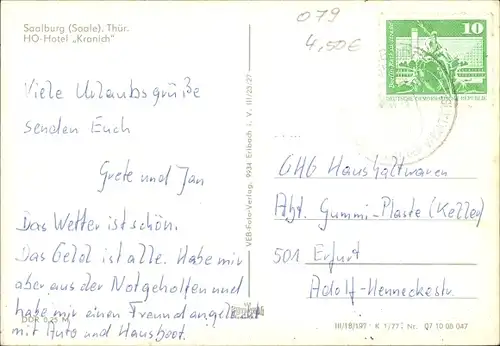 Saalburg (Saale), Thür.
HO-Hotel „Kranich"
079
4,50€
10
DEUTSCHE DEMOKRATISCHE REPUBLIK
Viele Urlaubsgrüße
senden Euch
Grete und Jan
Das Wetter ist schön.
Das Geld ist alle. Habe mir
aber aus der Not geholfen und
habe mir einen Freund angelacht
mit Auto und Hausboot.
DDR 0,25 M
VEB-Foto-Verlag, 9934 Erlbach i. V. III/23/27
GHG Haushaltwaren
Abt. Gummi-Plaste (Keller)
501 Erfurt
Adolf-Henneckestr.
III/18/197 K 1/77 Nr. 07 10 08 047